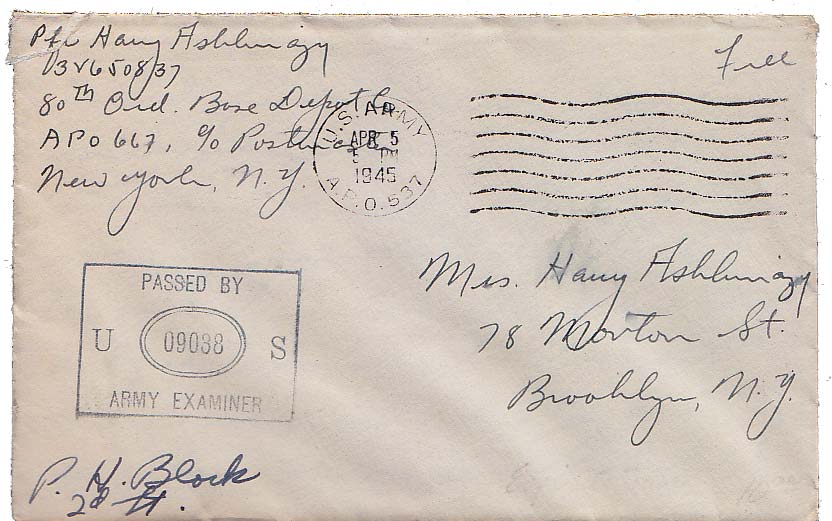 Pfc Harry Ashkinazy
13V650837
80TH Ord. Base Depot Co.
APO 667, c/o Postmaster
New York, N.Y.
Free
U.S. ARMY
APR 5
5 PM
1945
A.P.O. 537
Mrs. Harry Ashkinazy
78 Morton St.
Brooklyn, N.Y.
PASSED BY
U 09038 S
ARMY EXAMINER
P. H. Block
2d Lt.